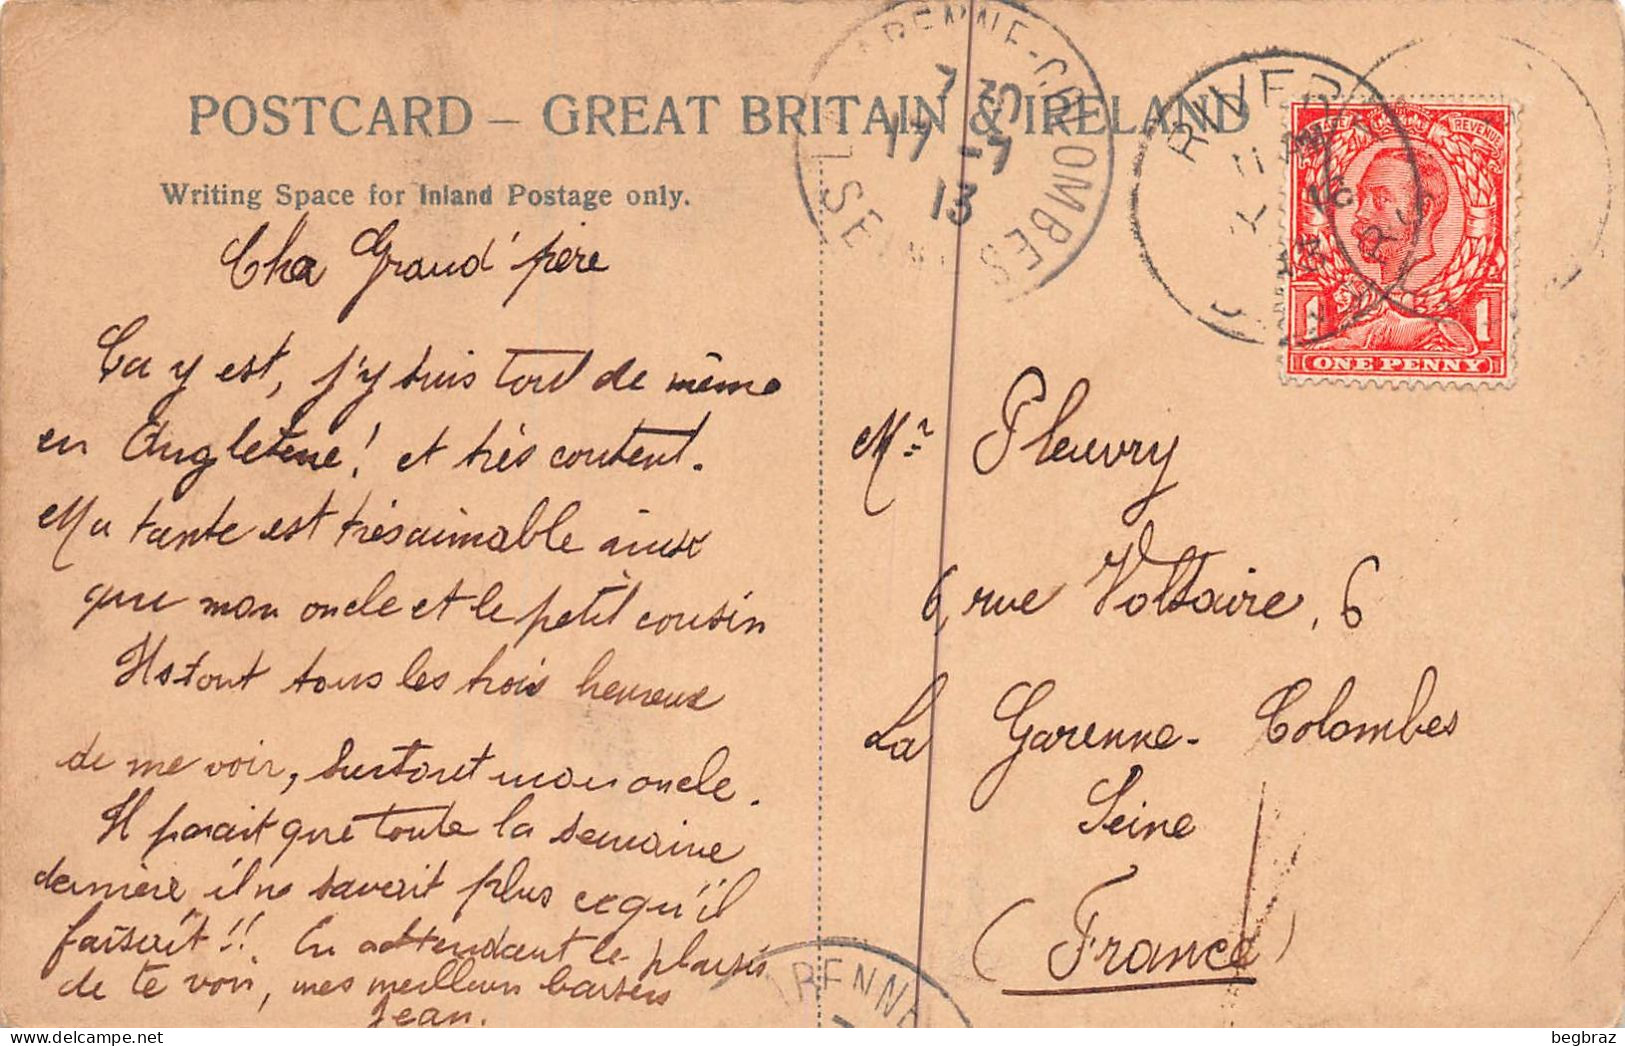 POSTCARD – GREAT BRITAIN & IRELAND
Writing Space for Inland Postage only.
Cher Grand'père
Ca y est, j'y suis tout de même
en Angleterre! et très content.
Ma tante est très aimable ainsi
que mon oncle et le petit cousin
Ils sont tous les trois heureux
de me voir, surtout mon oncle.
Il parait que toute la semaine
dernière il ne savait plus ce qu'il
faisait!! En attendant le plaisir
de te voir, mes meilleurs baisers
Jean.
LA GARENNE-COLOMBES
7 35
17 -7
13
SEINE
RIVER
REVENUE
1 1
ONE PENNY
Mr Fleuvry
6, rue Voltaire, 6
La Garenne-Colombes
Seine
(France)
GARENNE
begbraz